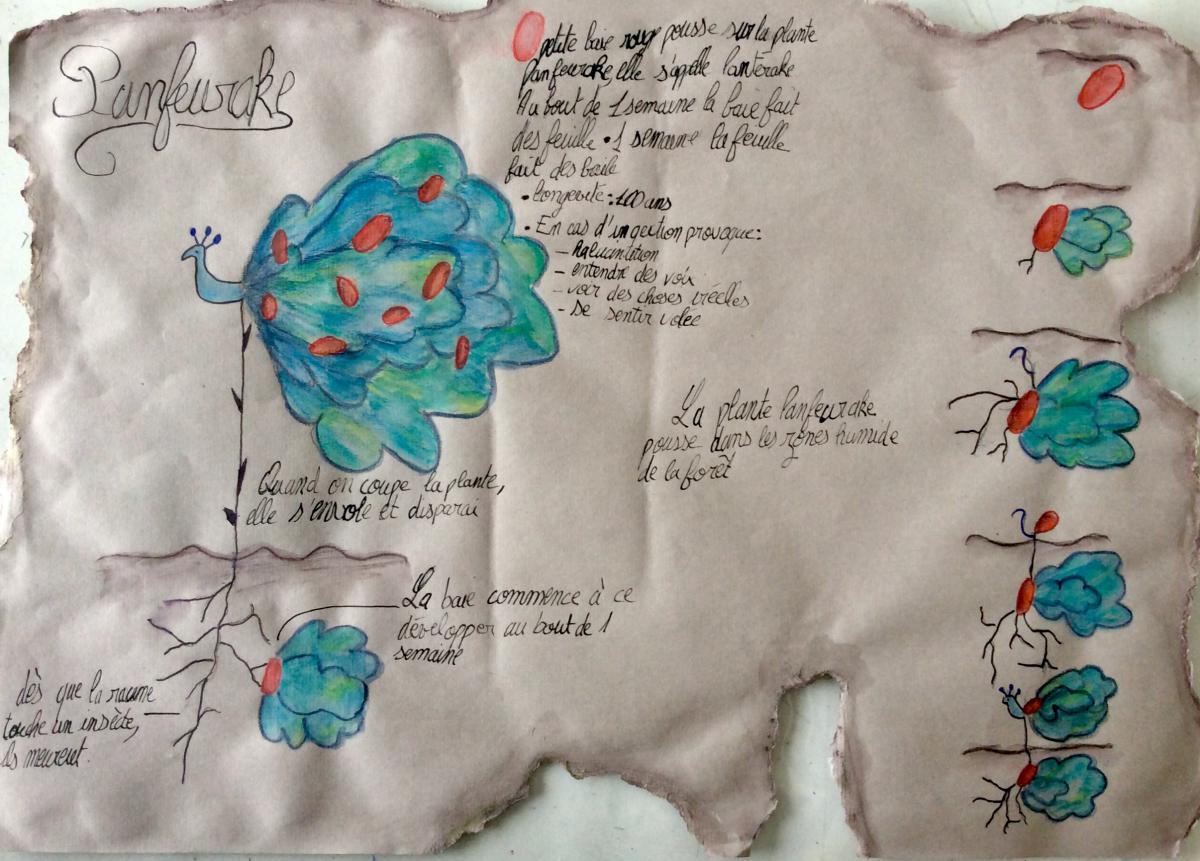 Panfeurake
petite baie rouge pousse sur la plante
Panfeurake, elle s'appelle lantérake
Au bout de 1 semaine la baie fait
des feuille • 1 semaine la feuille
fait des baile
• Longevité : 100 ans
• En cas d'ingection provoque :
– halucintition
– entendre des voix
– voir des choses iréelles
– se sentir volée
La plante Panfeurake
pousse dans les zones humide
de la forêt
Quand on coupe la plante,
elle s'envole et disparai
La baie commence à ce
développer au bout de 1
semaine
dès que la racine
touche un insècte,
ils meurent.